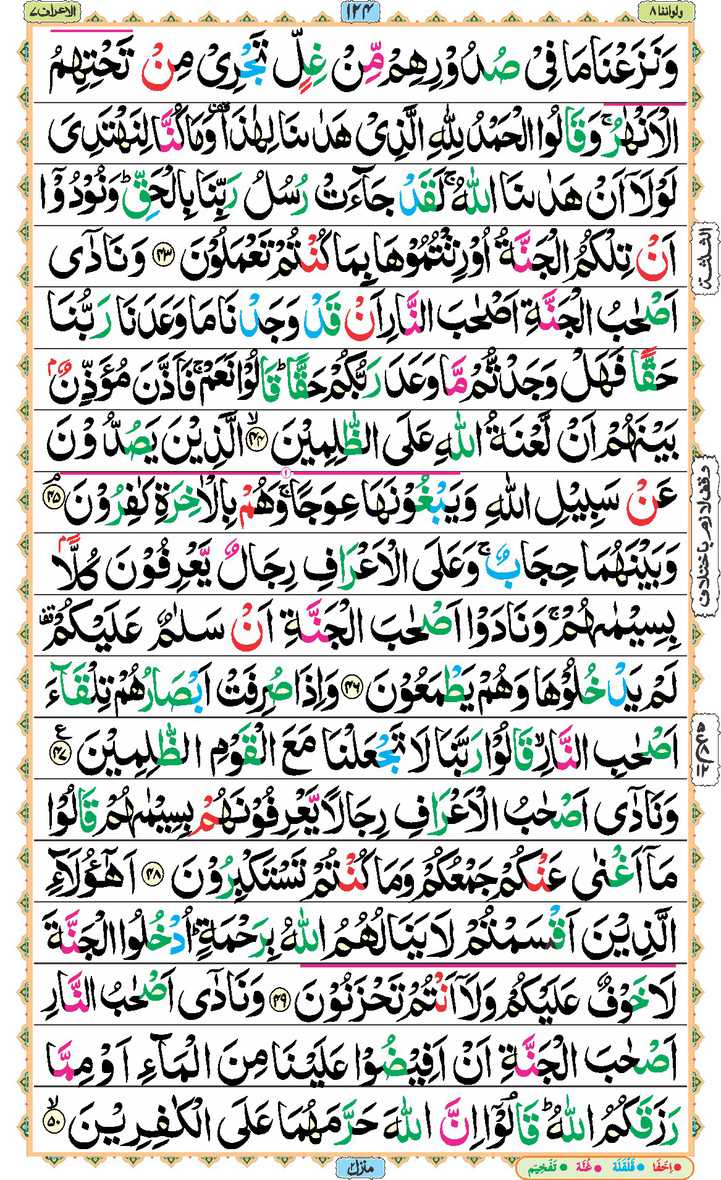 ولواننا ٨
١٢٤
الاعراف ٧
وَنَزَعْنَا مَا فِیْ صُدُوْرِهِمْ مِّنْ غِلٍّ تَجْرِیْ مِنْ تَحْتِهِمُ
الْاَنْهٰرُ ۚ وَقَالُوا الْحَمْدُ لِلّٰهِ الَّذِیْ هَدٰىنَا لِهٰذَا ۫ وَمَا كُنَّا لِنَهْتَدِیَ
لَوْلَاۤ اَنْ هَدٰىنَا اللّٰهُ ۚ لَقَدْ جَآءَتْ رُسُلُ رَبِّنَا بِالْحَقِّ ؕ وَنُوْدُوْۤا
اَنْ تِلْكُمُ الْجَنَّةُ اُوْرِثْتُمُوْهَا بِمَا كُنْتُمْ تَعْمَلُوْنَ ﴿۴۳﴾ وَنَادٰۤی
اَصْحٰبُ الْجَنَّةِ اَصْحٰبَ النَّارِ اَنْ قَدْ وَجَدْنَا مَا وَعَدَنَا رَبُّنَا
حَقًّا فَهَلْ وَجَدْتُّمْ مَّا وَعَدَ رَبُّكُمْ حَقًّا ؕ قَالُوْا نَعَمْ ۚ فَاَذَّنَ مُؤَذِّنٌۢ
بَیْنَهُمْ اَنْ لَّعْنَةُ اللّٰهِ عَلَی الظّٰلِمِیْنَ ﴿۴۴﴾ ۙ الَّذِیْنَ یَصُدُّوْنَ
عَنْ سَبِیْلِ اللّٰهِ وَیَبْغُوْنَهَا عِوَجًا ۚ وَهُمْ بِالْاٰخِرَةِ كٰفِرُوْنَ ﴿۴۵﴾ ۘ
وَبَیْنَهُمَا حِجَابٌ ۚ وَعَلَی الْاَعْرَافِ رِجَالٌ یَّعْرِفُوْنَ كُلًّاۢ
بِسِیْمٰىهُمْ ۚ وَنَادَوْا اَصْحٰبَ الْجَنَّةِ اَنْ سَلٰمٌ عَلَیْكُمْ ۫
لَمْ یَدْخُلُوْهَا وَهُمْ یَطْمَعُوْنَ ﴿۴۶﴾ وَاِذَا صُرِفَتْ اَبْصَارُهُمْ تِلْقَآءَ
اَصْحٰبِ النَّارِ ۙ قَالُوْا رَبَّنَا لَا تَجْعَلْنَا مَعَ الْقَوْمِ الظّٰلِمِیْنَ ﴿۴۷﴾ ع
وَنَادٰۤی اَصْحٰبُ الْاَعْرَافِ رِجَالًا یَّعْرِفُوْنَهُمْ بِسِیْمٰىهُمْ قَالُوْا
مَاۤ اَغْنٰی عَنْكُمْ جَمْعُكُمْ وَمَا كُنْتُمْ تَسْتَكْبِرُوْنَ ﴿۴۸﴾ اَهٰۤؤُلَآءِ
الَّذِیْنَ اَقْسَمْتُمْ لَا یَنَالُهُمُ اللّٰهُ بِرَحْمَةٍ ؕ اُدْخُلُوا الْجَنَّةَ
لَا خَوْفٌ عَلَیْكُمْ وَلَاۤ اَنْتُمْ تَحْزَنُوْنَ ﴿۴۹﴾ وَنَادٰۤی اَصْحٰبُ النَّارِ
اَصْحٰبَ الْجَنَّةِ اَنْ اَفِیْضُوْا عَلَیْنَا مِنَ الْمَآءِ اَوْ مِمَّا
رَزَقَكُمُ اللّٰهُ ؕ قَالُوْۤا اِنَّ اللّٰهَ حَرَّمَهُمَا عَلَی الْكٰفِرِیْنَ ﴿۵۰﴾ ۙ
الثلثة
وقف لازم باختلاف
منزل ٢
اخفا قلقلة غنة تفخيم